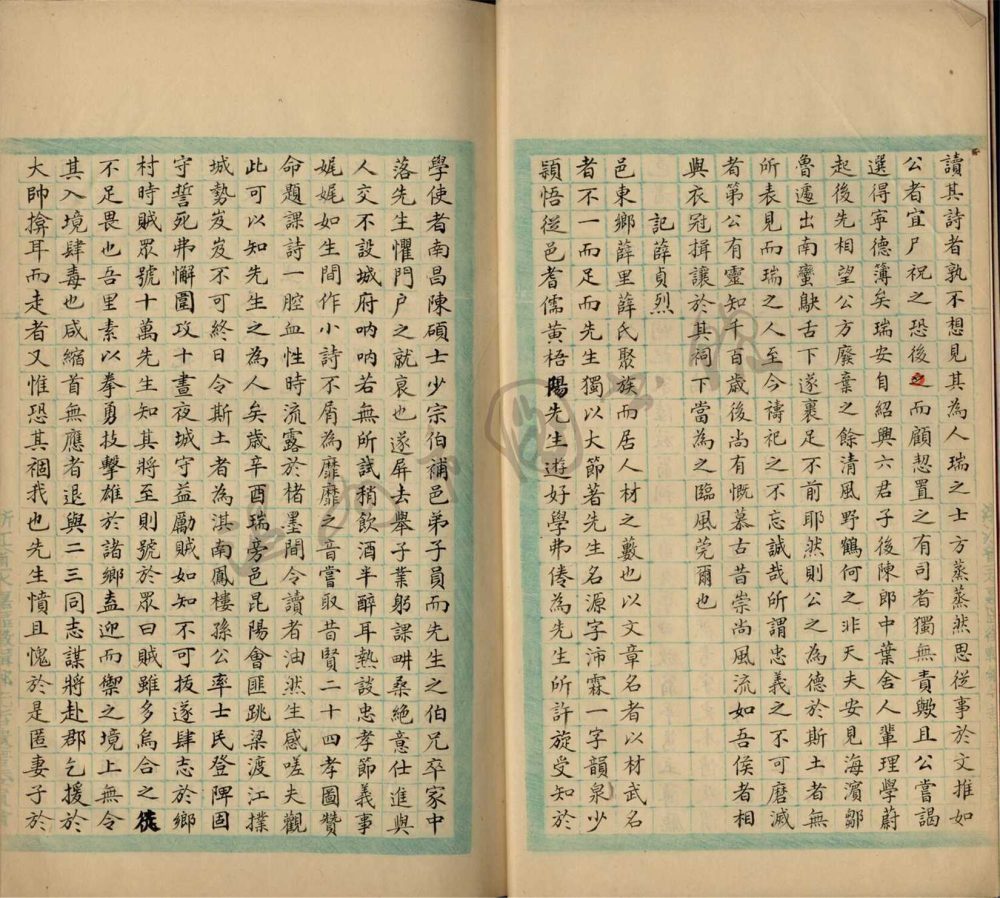 讀其詩者孰不想見其為人瑞之士方蒸蒸然思從事於文推如
公者宜尸祝之恐後之而顧恝置之有司者獨無責歟且公嘗謁
選得寧德簿矣瑞安自紹興六君子後陳郎中葉舍人輩理學蔚
起後先相望公方廢棄之餘清風野鶴何之非天夫安見海濱鄒
魯遽出南蠻鴃舌下遂裹足不前耶然則公之為德於斯土者無
所表見而瑞之人至今禱祀之不忘誠哉所謂忠義之不可磨滅
者第公有靈知千百歲後尚有慨慕古昔崇尚風流如吾侯者相
與衣冠揖讓於其祠下當為之臨風莞爾也
記薛貞烈
邑東鄉薛里薛氏聚族而居人材之藪也以文章名者以材武名
者不一而足而先生獨以大節著先生名源字沛霖一字韻泉少
穎悟從邑耆儒黃梧陽先生遊好學弗倦為先生所許旋受知於
學使者南昌陳碩士少宗伯補邑弟子員而先生之伯兄卒家中
落先生懼門户之就衰也遂屏去舉子業躬課畊桑絕意仕進與
人交不設城府吶吶若無所試稍飲酒半醉耳熱談忠孝節義事
娓娓如生間作小詩不屑為靡靡之音嘗取昔賢二十四孝圖贊
命題課詩一腔血性時流露於楮墨間令讀者油然生感嗟夫觀
此可以知先生之為人矣歲辛酉瑞旁邑昆陽會匪跳梁渡江撲
城勢岌岌不可終日令斯土者為淇南鳳樓孫公率士民登陴固
守誓死弗懈圍攻十晝夜城守益勵賊如知不可拔遂肆志於鄉
村時賊眾號十萬先生知其將至則號於眾曰賊雖多烏合之徒
不足畏也吾里素以拳勇技擊雄於諸鄉盍迎而禦之境上無令
其入境肆毒也咸縮首無應者退與二三同志謀將赴郡乞援於
大帥揜耳而走者又惟恐其禍我也先生憤且愧於是匿妻子於